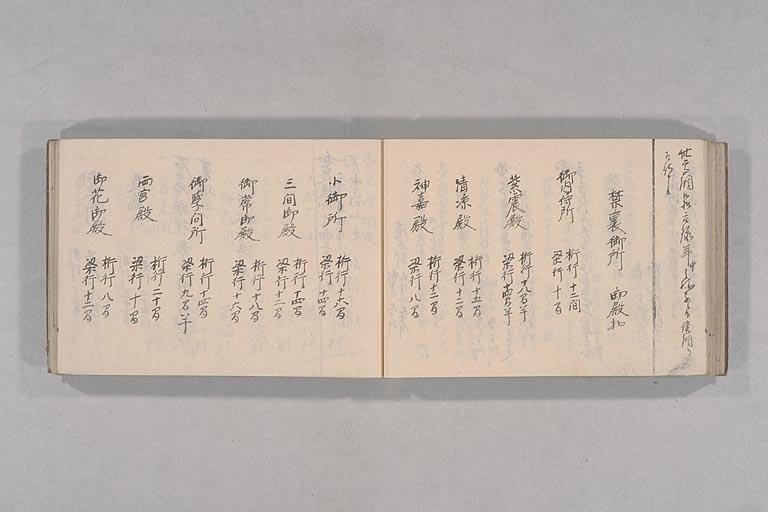 禁裏御所 御殿
御内侍所
桁行十二間
梁行十間
紫宸殿
桁行十九間半
梁行十四間半
清凉殿
桁行十五間
梁行十二間
神嘉殿
桁行十二間
梁行八間
小御所
桁行十六間
梁行十四間
三間御殿
桁行十四間
梁行十二間
御常御殿
桁行十八間
梁行十六間
御学問所
桁行十四間
梁行九間半
両宮殿
桁行二十間
梁行十間
御花御殿
桁行八間
梁行十二間